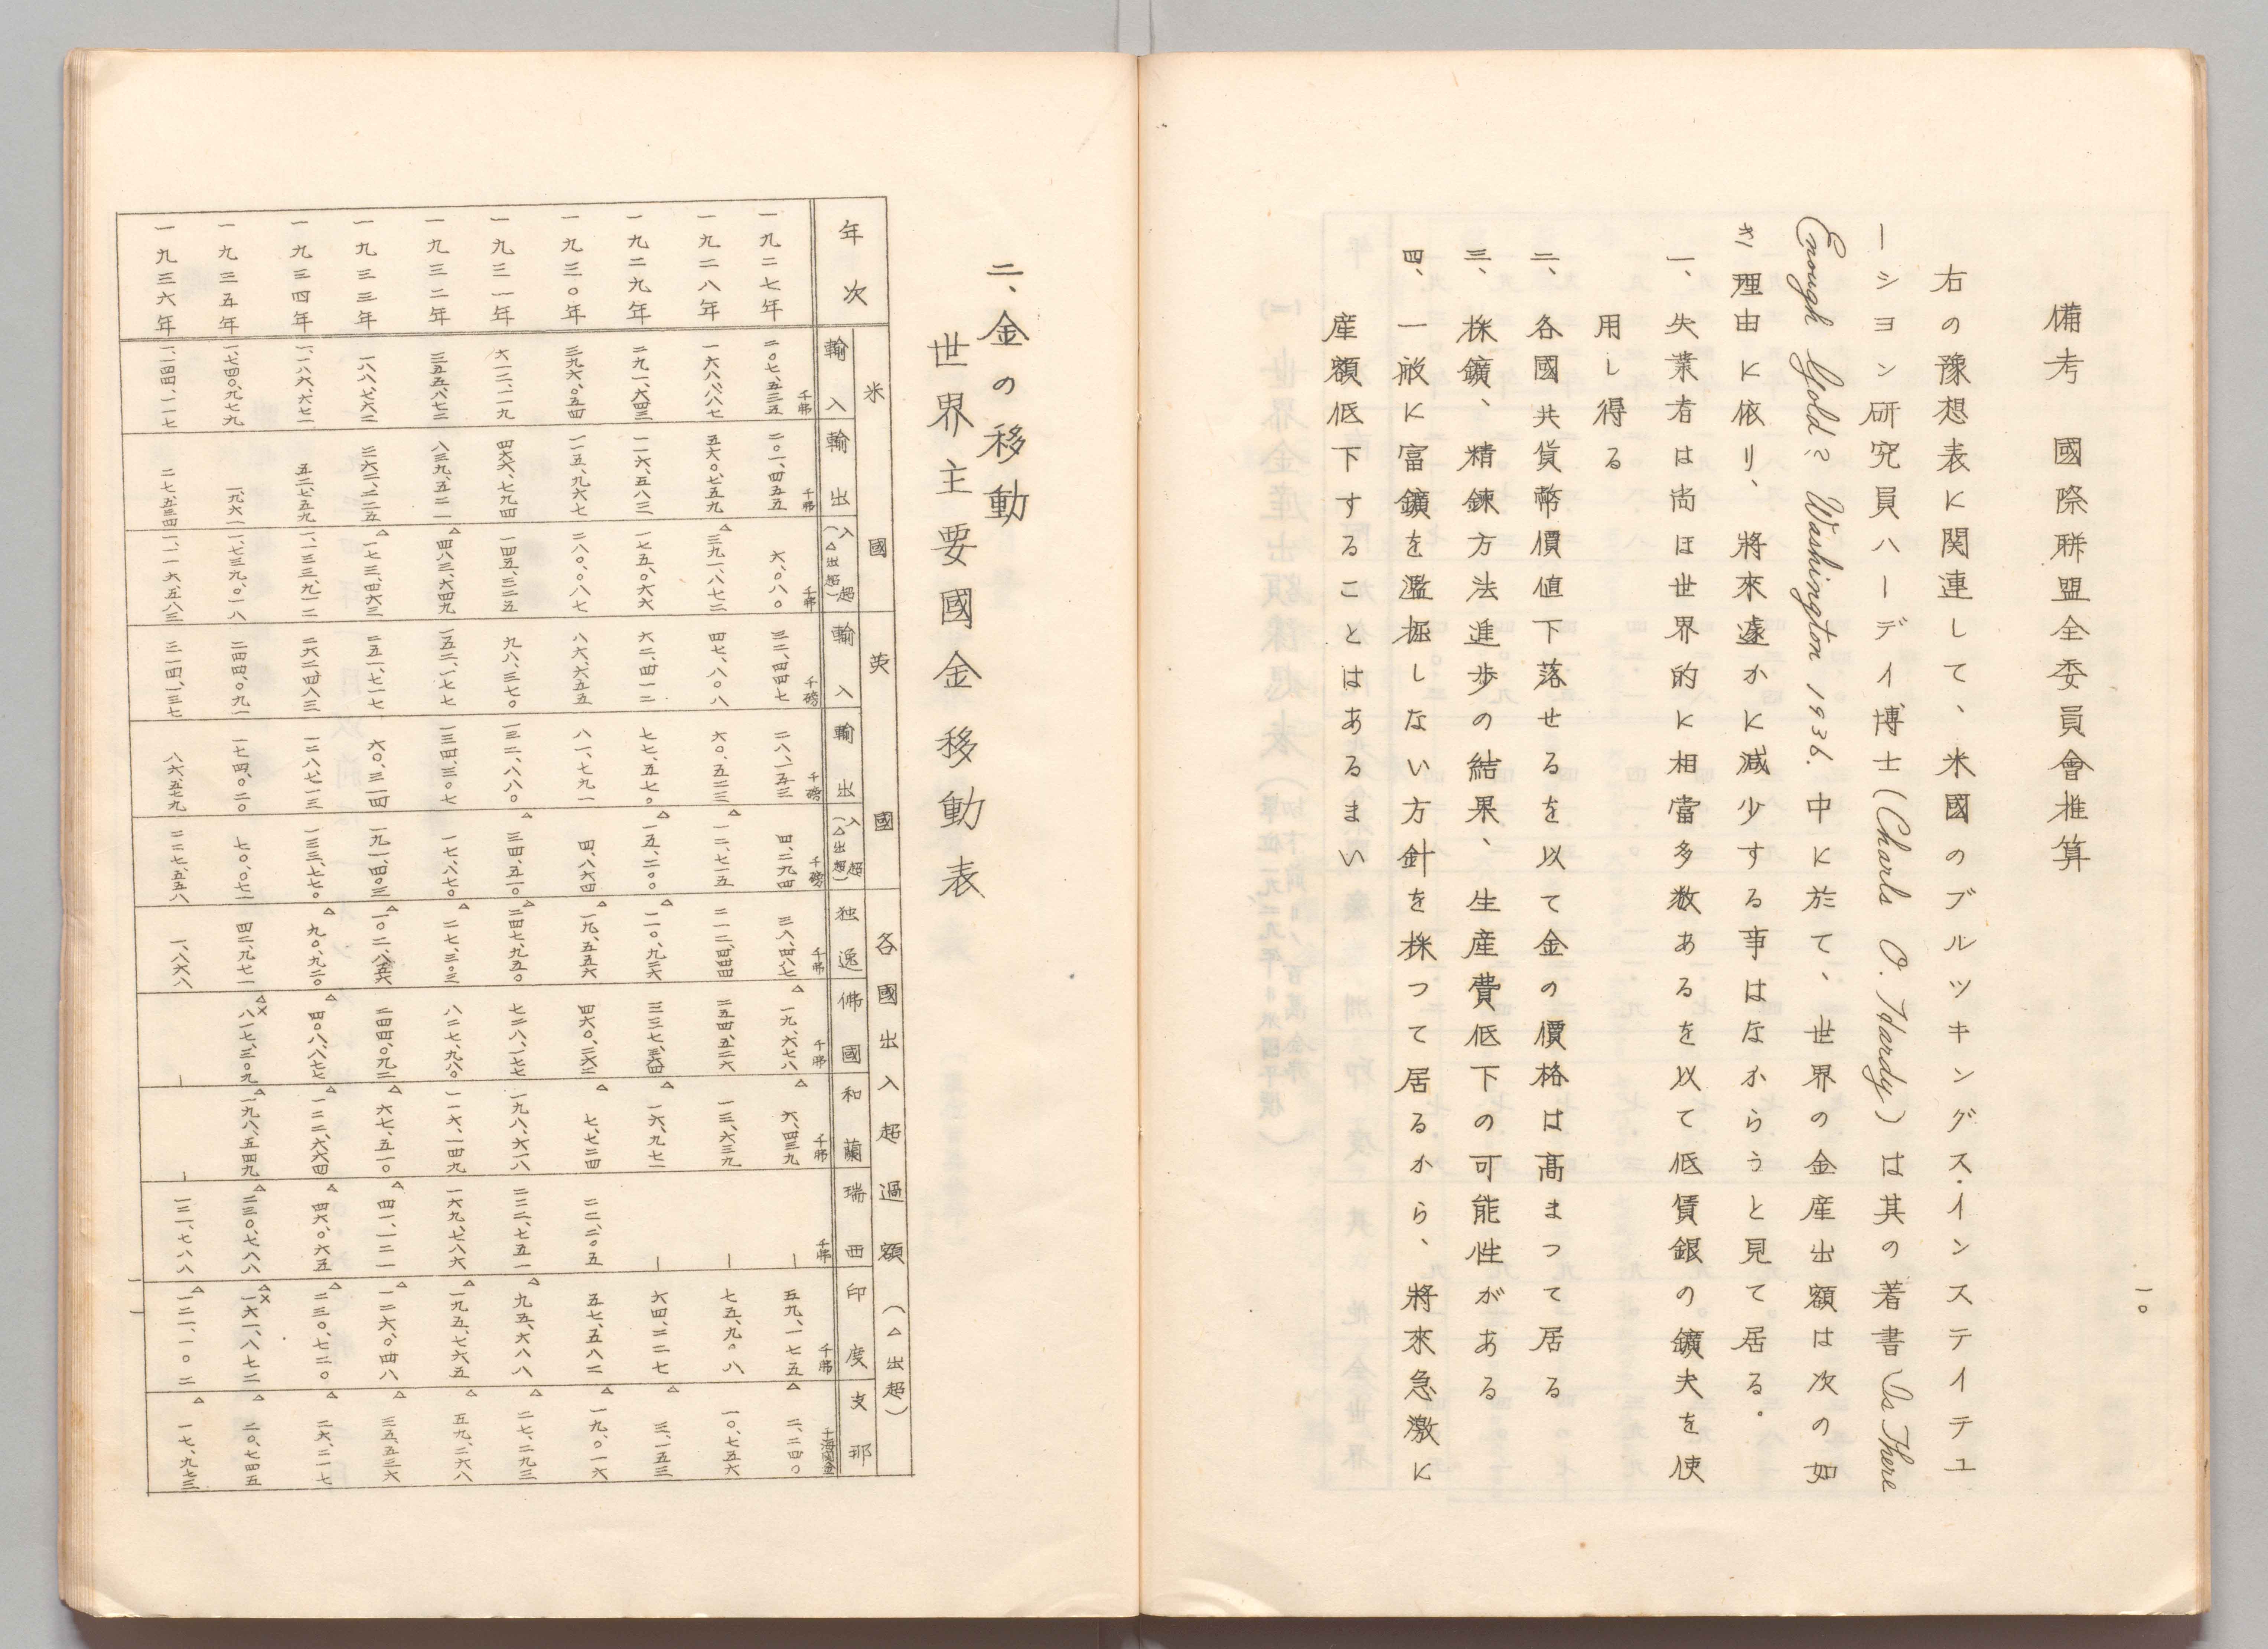 一〇
備考　國際聯盟全委員會推算
右の豫想表に関連して、米國のブルツキングス・インステイテユ
ーシヨン研究員ハーディ博士(Charls O. Hardy)は其の著書 Is There
Enough Gold? Washington 1936. 中に於て、世界の金産出額は次の如
き理由に依り、將來遽かに減少する事はなからうと見て居る。
一、失業者は尚ほ世界的に相當多数あるを以て低賃銀の鑛夫を使
用し得る
二、各國共貨幣價値下落せるを以て金の價格は高まつて居る
三、採鑛、精錬方法進歩の結果、生産費低下の可能性がある
四、一般に富鑛を濫掘しない方針を採つて居るから、將來急激に
産額低下することはあるまい
二、金の移動
世界主要國金移動表
米國　英國　各國出入超過額(△出超)
年次　輸入　輸出　入超(△出超)　輸入　輸出　入超(△出超)　独逸　佛國　和蘭　瑞西　印度　支那
千弗　千弗　千弗　千磅　千磅　千磅　千弗　千弗　千弗　千弗　千弗　千海関金
一九二七年　二〇七、五三五　二〇一、四五五　六、〇八〇　三二、四四七　二八、一五三　四、二九四　三八、四八七　△一九、六七八　△六、四三九　―　五九、一七五　△二、二四〇
一九二八年　一六八、八八七　五六〇、七五九　△三九一、八七二　四七、八〇八　六〇、五二三　△一二、七一五　二一二、四四四　二五四、五二六　一三、六三九　―　七五、九〇八　一〇、七五六
一九二九年　二九一、六四三　一一六、五八三　一七五、〇六六　六二、四一二　七七、五七〇　△一五、二〇〇　△一一〇、九二六　三三七、三六四　△一六、九七一　―　六四、二二七　△三、一五三
一九三〇年　三九六、〇五四　一一五、九六七　二八〇、〇八七　八六、六五五　八一、七九一　四、八六四　△一九、五五六　四六〇、二六二　△七、七二四　二二、二〇五　五七、五八二　△一九、〇一六
一九三一年　六一二、一一九　四六六、七九四　一四五、三二五　九八、三七〇　一三二、八八〇　△三四、五一〇　△二四七、九五〇　七二八、一七七　一九八、六一八　二二二、七五一　△九五、六八八　△二七、二九三
一九三二年　三五五、八七二　八三九、五二一　△四八三、六四九　一五二、一七七　一三四、三〇七　一七、八七〇　△二七、三〇三　八二七、九八〇　一一六、一四九　一六九、七八六　△一九五、七六五　△五九、二六八
一九三三年　一八八、七六二　三六二、二二五　△一七三、四六三　二五一、七一七　六〇、三一四　一九一、四〇三　△一〇二、八五六　二四四、〇九二　△六七、五一〇　△四一、一二一　△一二六、〇四八　△三五、五三六
一九三四年　一、一八六、六七一　五二、七五九　一、一三三、九一二　二六二、四八三　一二八、七一三　一三三、七七〇　△九〇、九二〇　△四〇八、八七七　△一二二、六六四　△四六、〇六五　△二三〇、七二〇　△二六、二一七
一九三五年　一、七四〇、九七九　一、九六一　一、七三九、〇一八　二四四、〇九一　一七四、〇二〇　七〇、〇七一　四二、九七一　△×八一七、三〇九　△一九八、五四九　△二三〇、七八八　△×一六一、八七二　△二〇、七四五
一九三六年　一、一四四、一一七　二七、五三四　一、一一六、五八三　三一四、一三七　八六、五七九　二二七、五五八　一、八六八　―　―　一三一、七八八　△一二一、一〇二　△一七、九七三
一一